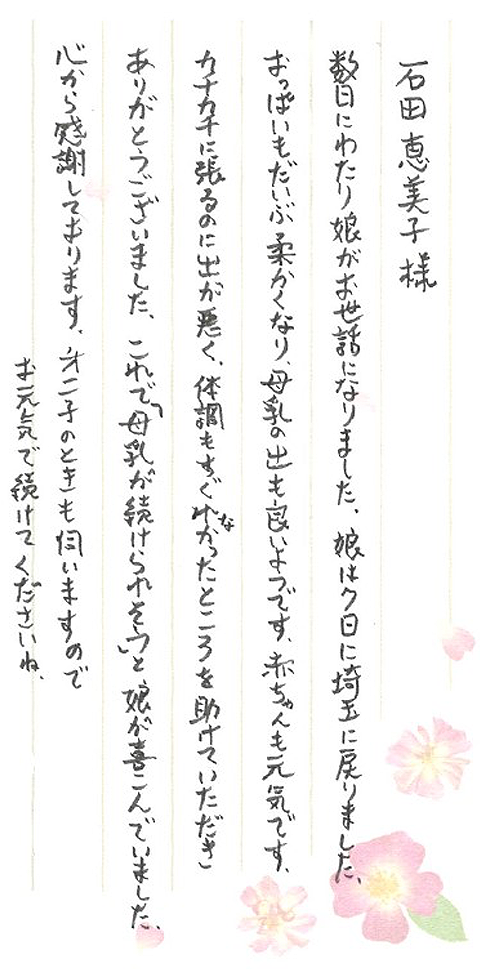 石田恵美子様
数日にわたり娘がお世話になりました、娘は7日に埼玉に戻りました、
おっぱいもだいぶ柔かくなり、母乳の出も良いようです、赤ちゃんも元気です、
カチカチに張るのに出が悪く、体調もすぐれなかったところを助けていただき
ありがとうございました、これで「母乳が続けられそう」と娘が喜こんでいました、
心から感謝しております、才二子のときも伺いますので
お元気で続けてくださいね、